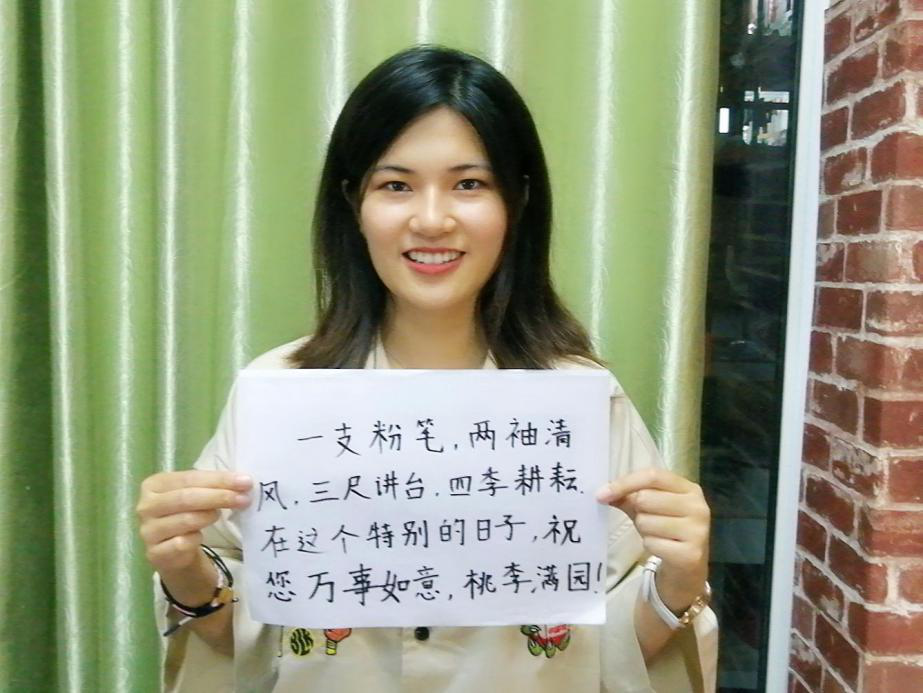 一支粉笔,两袖清
风.三尺讲台.四季耕耘.
在这个特别的日子,祝
您万事如意,桃李满园!